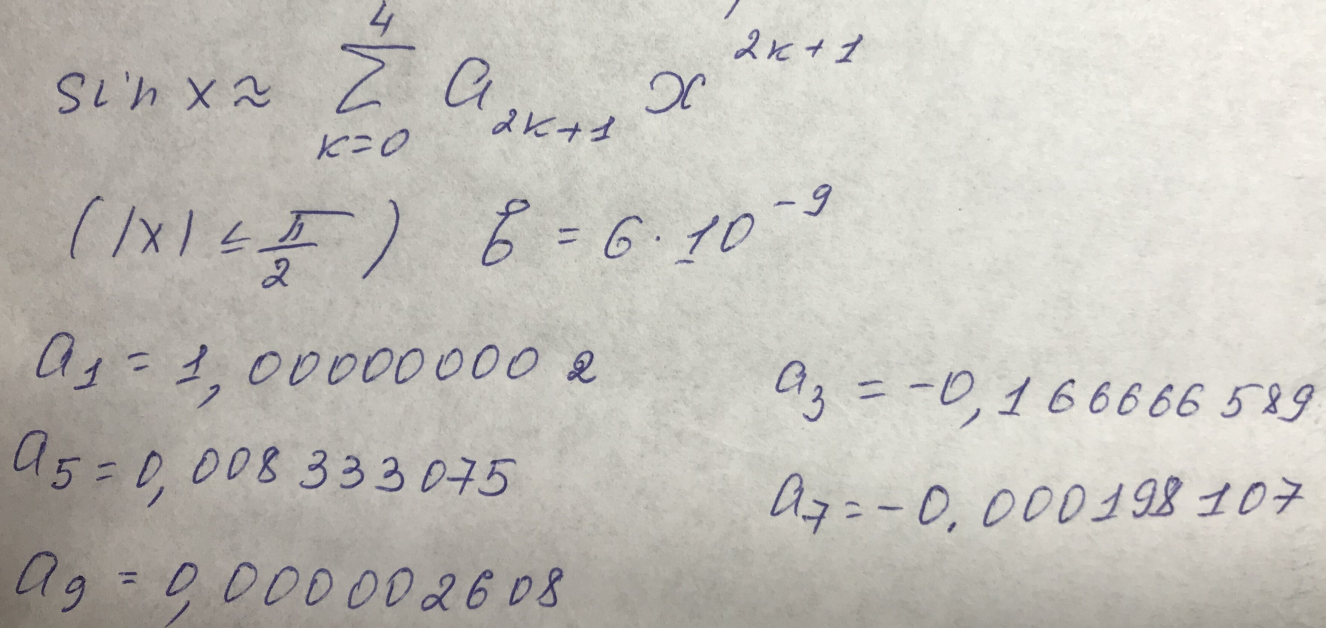 sin x ≈ \sum_{k=0}^{4} a_{2k+1} x^{2k+1}
(|x| ≤ \frac{π}{2}) δ = 6 · 10^{-9}
a_1 = 1,000000002 a_3 = -0,166666589
a_5 = 0,008333075 a_7 = -0,000198107
a_9 = 0,000002608